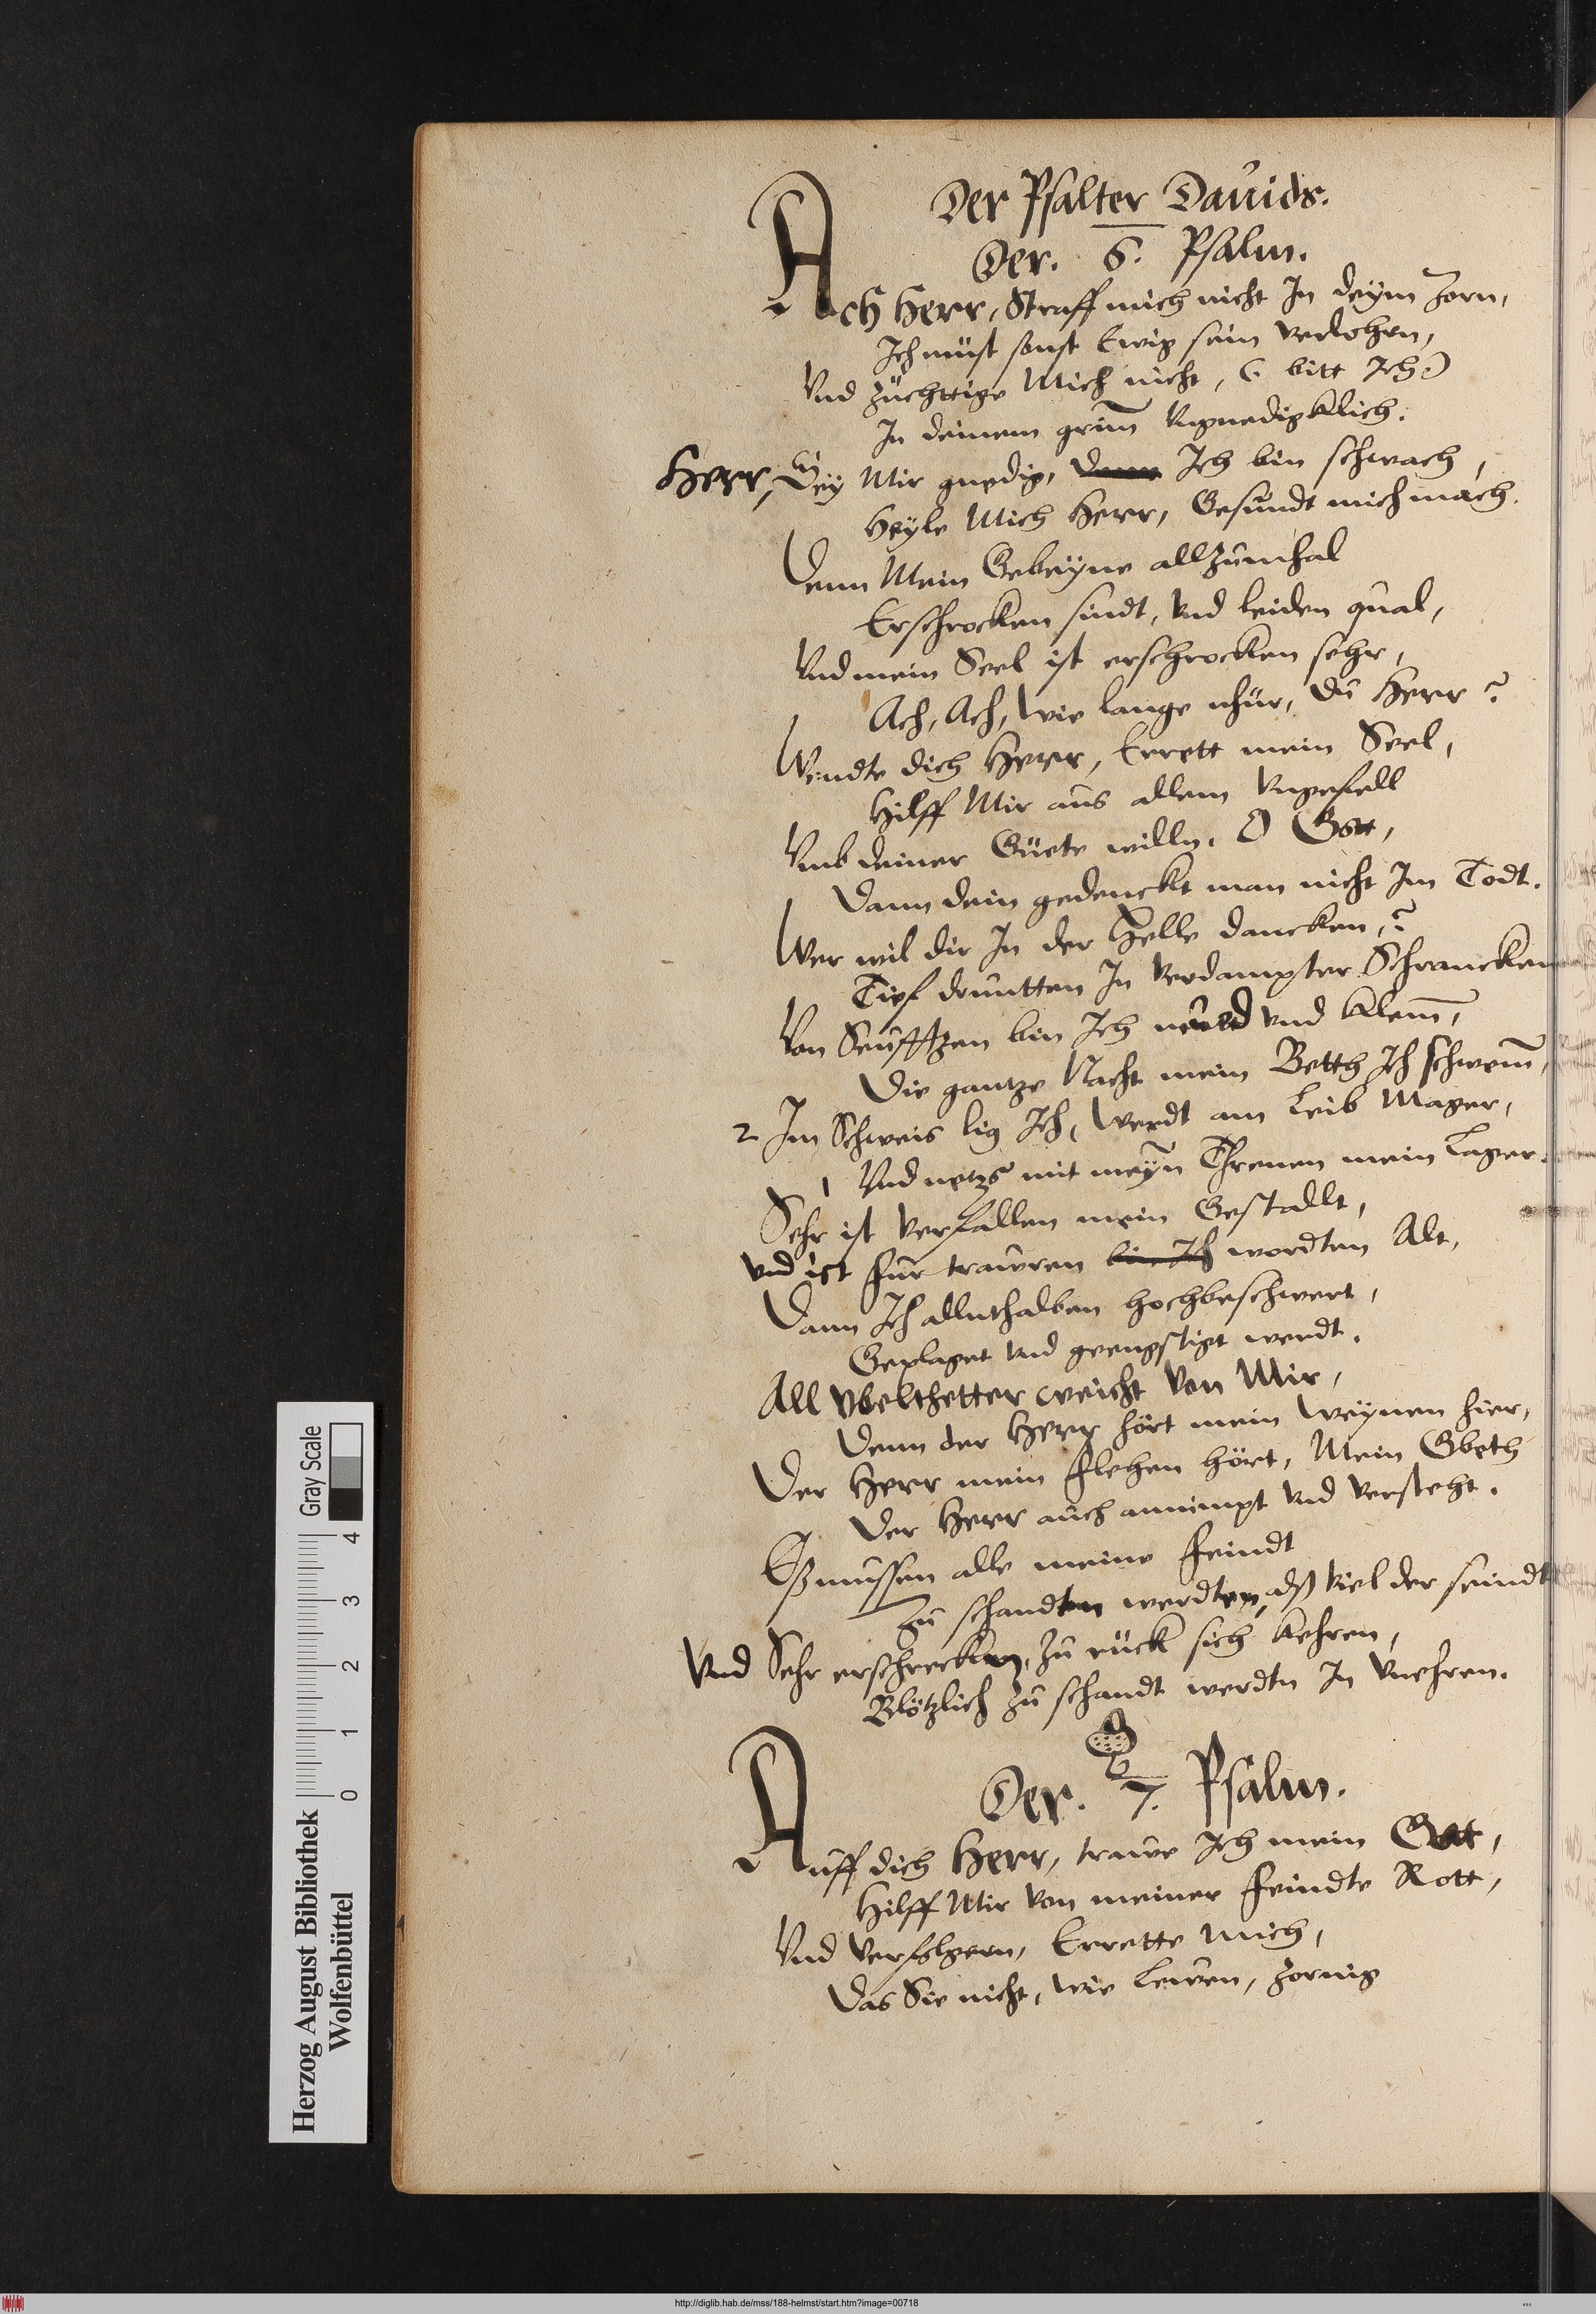 Der Psalter Dauids.
Der. 6. Psalm.
Ach Herr, Straff mich nicht In deym Zorn,
Ich müst sonst Ewig sein verlohrn,
Vnd züchttige Mich nicht, (bitt Ich)
In deinem grim̄ Vngnedigklich.
Herr, Sey Mir gnedig, Ich bin schwach,
Heyle Mich Herr, Gesundt mich mach.
Denn Mein Gebeyne allzumhal
Erschrocken sindt, Vnd leiden qual,
Vnd mein Seel ist erschrocken sehr,
Ach, Ach, Wie lange nhür, Du Herr?
Wendte dich Herr, Errett mein Seel,
Hilff Mir aus allem Vngefell
Vmb deiner Güete willn, O Gott,
Dann dein gedenckt man nicht Im Todt.
Wer wil dir In der Helle dancken,?
Tief druntten In Verdampter Schrancken
Von Seufftzen bin Ich müed vnd klem̄,
Die gantze Nacht mein Betth Ich schwem̄,
2 Im Schweis lig Ich, Werdt am Leib Mager,
1 Vnd netzs mit meyn̄ Threnen mein Lager.
Sehr ist Verfallen mein Gestallt,
vnd ist für trawren bin Ich wordten Alt,
Dann Ich allnthalben hochbeschwert,
Geplaget vnd geengstiget werdt.
All vbelthetter weicht Von Mir,
Denn der Herr hört mein Weynen hier,
Der Herr mein Flehen hört, Mein Gbeth
Der Herr auch annimpt Vnd Versteht.
Eß müssen alle meine Feindt
Zu schandten werdten, aß Viel der seindt
Vnd Sehr erschrecken, Zu rück sich kehren,
Blötzlich zu schandt werdtn In Vnehren.
Der. 7. Psalm.
Auff dich Herr, trawe Ich mein Gott,
Hilff Mir Von meiner Feindte Rott,
Vnd Verfolgern, Errette Mich,
Das Sie nicht, wie Lewen, zornig
Herzog August Bibliothek
Wolfenbüttel
0 1 2 3 4
Gray Scale
http://diglib.hab.de/mss/188-helmst/start.htm?image=00718